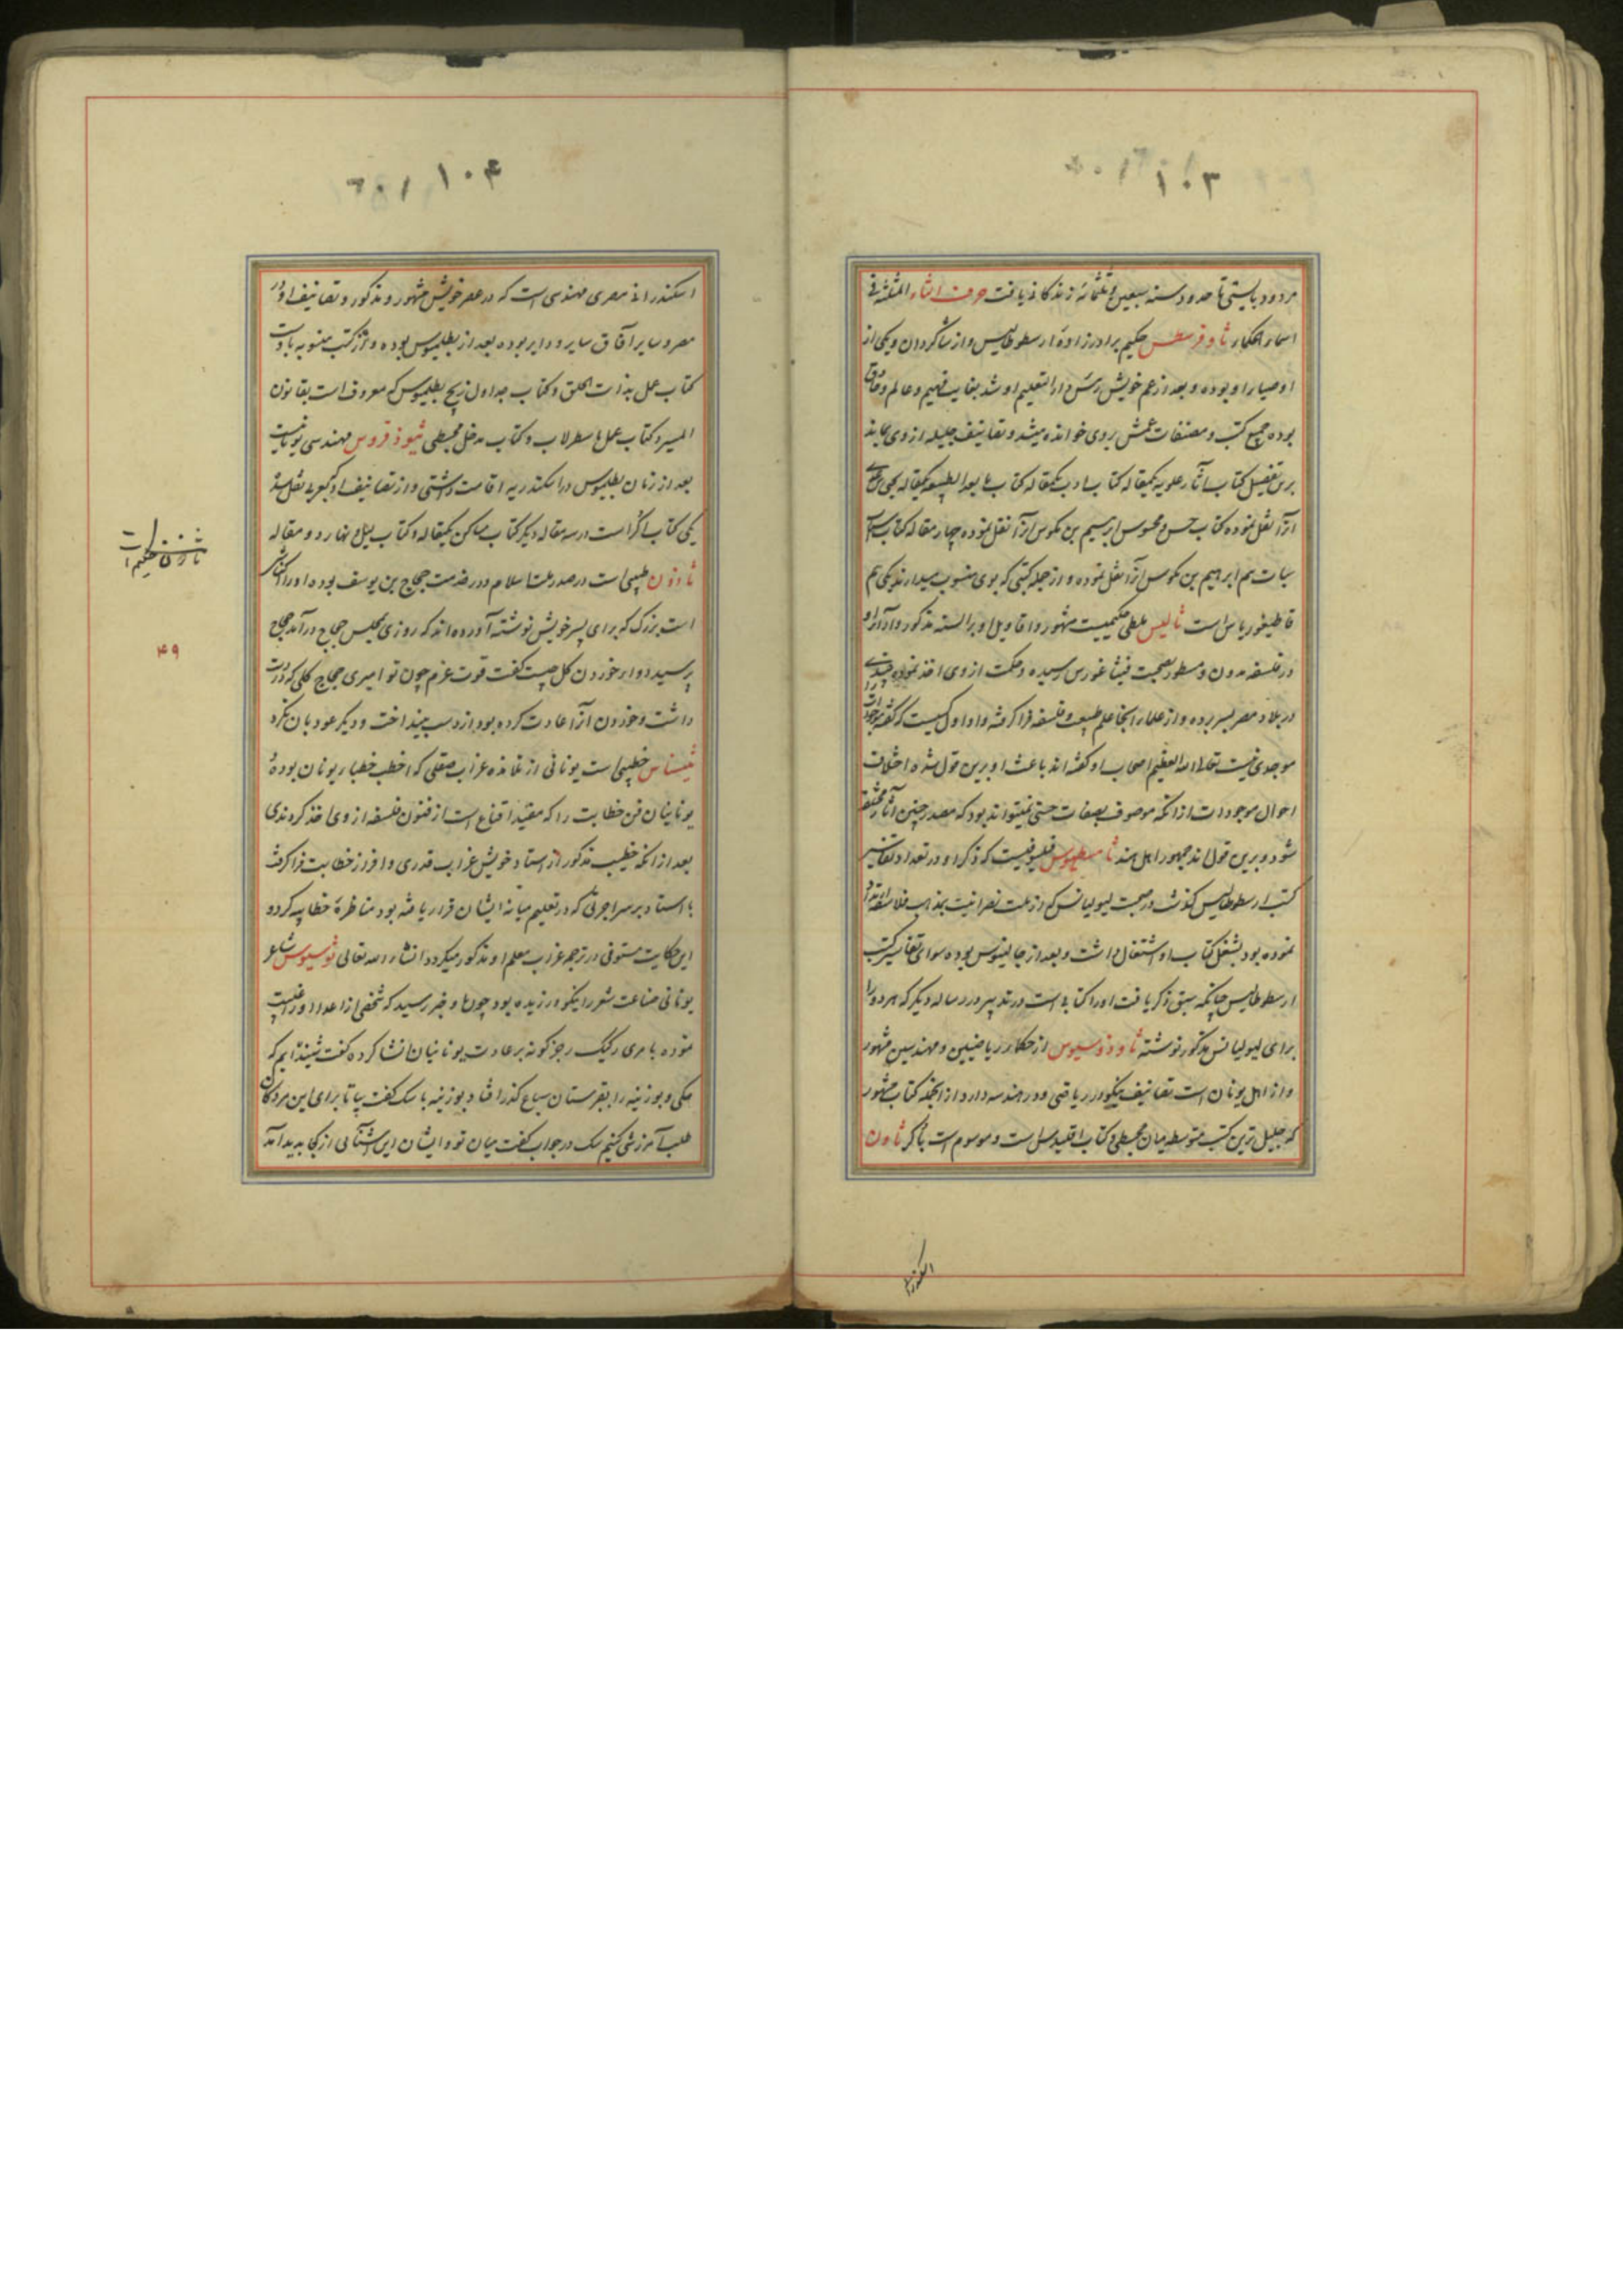 ۱۰۳
مردود بایستی تا حدود سنه سبعین و ثلثمائه زندگانی یافت حرف الثاء المثلثه فی
اسماء الحکماء ثاوفرسطس حکیم برادرزادهٔ ارسطوطالیس و از شاگردان و یکی از
اوصیاء او بوده و بعد از عم خویش رئیس دار التعلیم او شد بغایت فهیم و عالم و
بوده جمیع کتب و مصنفات عمش بروی خوانده میشد و تصانیف جلیله از وی بماند
برین تفصیل کتاب آثار علویه یکمقاله کتاب ادب یکمقاله کتاب ما بعد الطبیعه یکمقاله یحیی بن عدی
آنرا نقل نموده کتاب حس و محسوس ابراهیم بن بکوس آنرا نقل نموده چهار مقاله کتاب اسباب
نبات هم ابراهیم بن بکوس آنرا نقل نموده و از جمله کتبی که بوی منسوب میدارند یکی هم
قاطیغوریاس است ثالیس ملطی حکیمیست مشهور و اقاویل او بر السنه مذکور و آراء او
در فلسفه مدون و مسطور بصحبت فیثاغورس رسیده و حکمت از وی اخذ نموده چندی
در بلاد مصر بسر برده و از علماء آنجا علم طبیعت و فلسفه فرا گرفته و او اول کسیست که گفته موجودات را
موجدی نیست تعالی الله العظیم اصحاب او گفته‌اند باعث او برین قول شده اختلاف
احوال موجودات از آنکه موصوف بصفات حسنی نمیتواند بود که مصدر چنین آثار مختلفه
شود و برین قول‌اند جمهور اهل هند ثامسطیوس فیلسوفیست که ذکر او در تعداد تفاسیر
کتب ارسطوطالیس گذشت در صحبت لیولیانس که از ملت نصرانیت بمذهب فلاسفه ارتداد
نموده بود بشغل کتاب او اشتغال داشت و بعد از جالینوس بوده سوای تفاسیر کتب
ارسطوطالیس چنانکه سبق ذکر یافت او را کتابی است در تدبیر و رساله دیگر که هر دو را
برای لیولیانس مذکور نوشته ثاوذوسیوس از حکماء ریاضیین و مهندسین مشهور
و از اهل یونان است تصانیف نیکو در ریاضی و در هندسه دارد از آنجمله کتاب مشهور
که جلیل‌ترین کتب متوسطه میان مجسطی و کتاب اقلیدس است و موسوم است باکر ثاون
اسکندرانی
۱۰۴
اسکندرانی مصری مهندسی است که در عصر خویش مشهور و مذکور و تصانیف او در
مصر و سایر آفاق سایر و دایر بوده بعد از بطلمیوس بوده و از کتب منسوبه باوست
کتاب عمل بذات الحلق و کتاب جداول زیج بطلمیوس که معروف است بقانون
المسیر و کتاب عمل باسطرلاب و کتاب مدخل مجسطی ثیوذفروس مهندسی یونانیست
بعد از زمان بطلمیوس در اسکندریه اقامت داشتی و از تصانیف او که بعربی نقل شده
یکی کتاب اکر است در سه مقاله دیگر کتاب مساکن یکمقاله و کتاب لیل و نهار دو مقاله
ثاوذون طبیبی است در صدر ملت اسلام در خدمت حجاج بن یوسف بوده او را کناشی
است بزرگ که برای پسر خویش نوشته آورده‌اند که روزی بمجلس حجاج در آمد حجاج
پرسید دواء خوردن گل چیست گفت قوت عزم چون تو امیری حجاج گلی که در دست
داشت و خوردن آنرا عادت کرده بود از دست بینداخت و دیگر عود بآن نکرد
ثیسناس خطیبی است یونانی از تلامذه غراب صقلی که اخطب خطباء یونان بوده
یونانیان فن خطابت را که مقید اقناع است از فنون فلسفه از وی اخذ کردندی
بعد از آنکه خطیب مذکور از استاد خویش غراب قدری وافر از خطابت فرا گرفت
با استاد بر سر اجرتی که در تعلیم میانه ایشان قرار یافته بود مناظره خطابیه کرد و
این حکایت مستوفی در ترجمه غراب معلم او مذکور میگردد انشاء الله تعالی ثوسیوس شاعر
یونانی صناعت شعر را نیکو ورزیده بود چون باو خبر رسید که شخصی از اعداء او غیبت
نموده بامری رکیک رجز گونه بر عادت یونانیان انشا کرده گفت شنیده‌ایم که
سگی و بوزینه را بقبرستان سباع گذر افتاد بوزینه با سگ گفت بیا تا برای این مردگان
طلب آمرزش کنیم سگ در جواب گفت میان تو و ایشان این آشنائی از کجا پدید آمد
ثاذون حکیم
۴۹